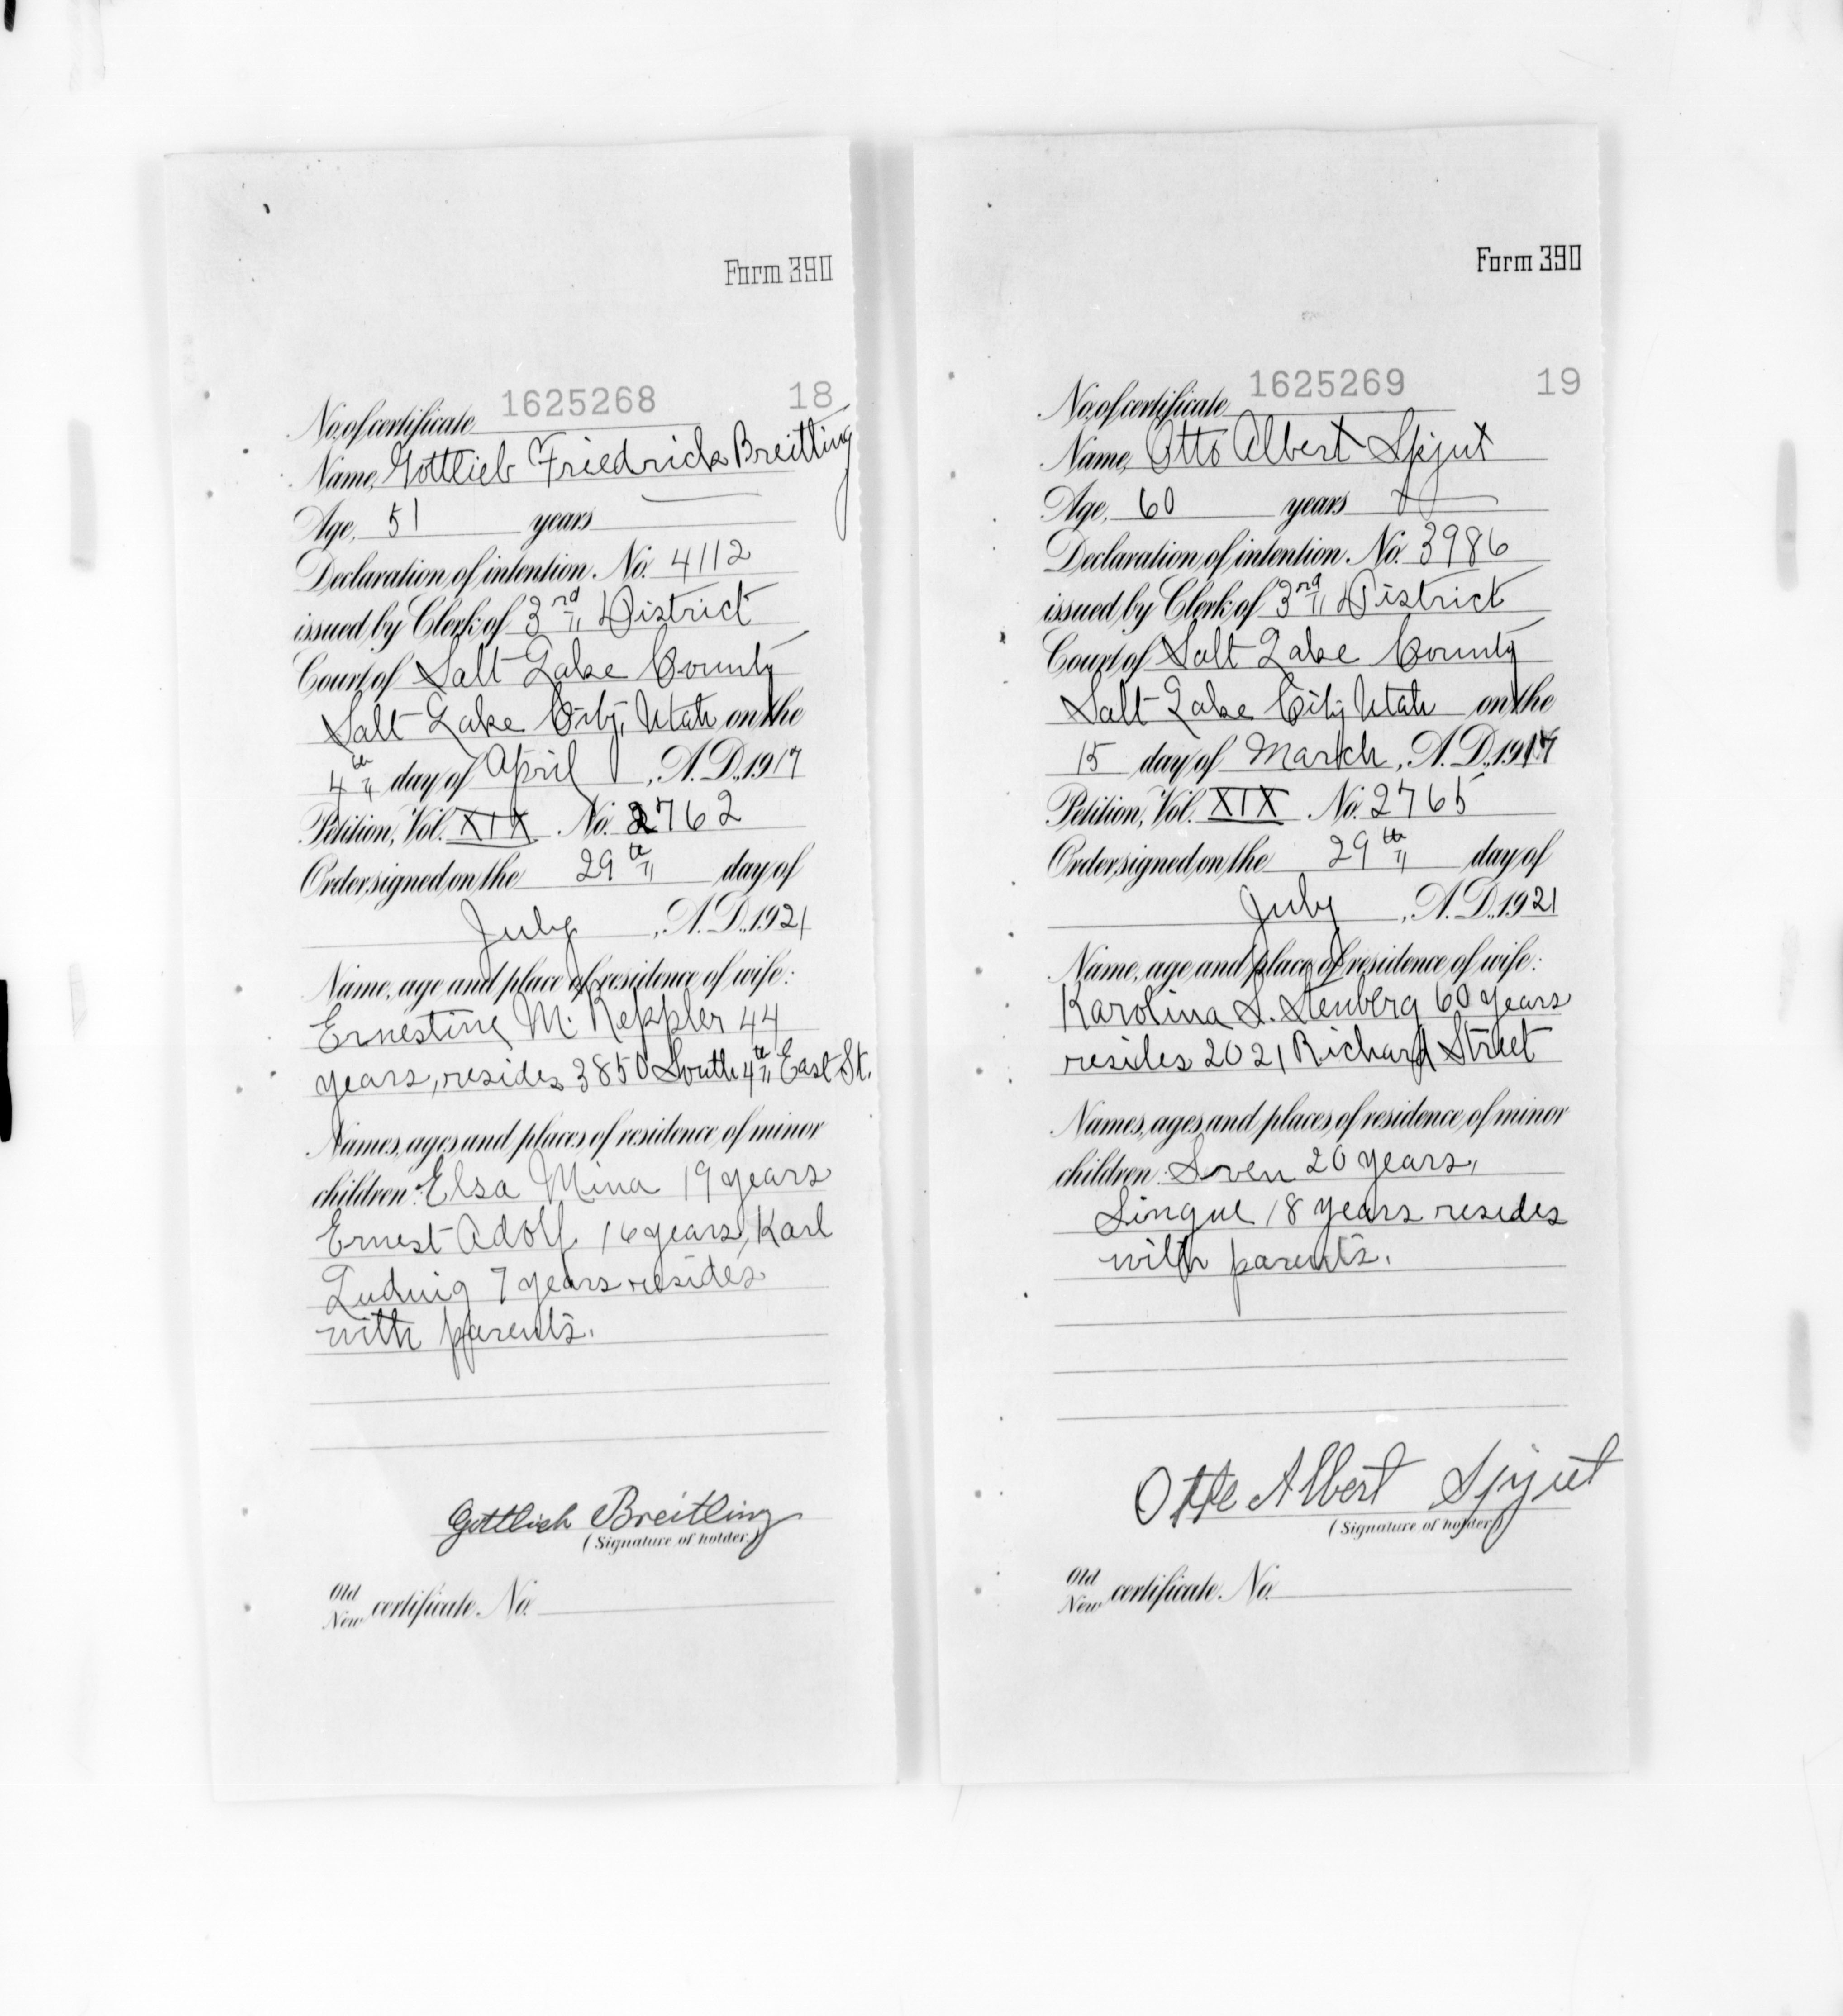 Form 390
No. of certificate 1625268 18
Name, Gottlieb Friedrick Breitling
Age, 51 years
Declaration of intention No. 4112
issued by Clerk of 3rd District
Court of Salt Lake County
Salt Lake City, Utah on the
4th day of April, A.D. 1917
Petition, Vol. XIX No. 2762
Order signed on the 29th day of
July, A.D. 1921
Name, age and place of residence of wife:
Ernestine M. Keppler 44
years, resides 3850 South 4th East St.
Names, ages and places of residence of minor
children: Elsa Mina 19 years
Ernest Adolf 16 years, Karl
Ludwig 7 years resides
with parents.
Gottlieb Breitling
(Signature of holder)
Old
New certificate No.
Form 390
No. of certificate 1625269 19
Name, Otto Albert Spjut
Age, 60 years
Declaration of intention No. 3986
issued by Clerk of 3rd District
Court of Salt Lake County
Salt Lake City Utah on the
15 day of March, A.D. 1917
Petition, Vol. XIX No. 2765
Order signed on the 29th day of
July, A.D. 1921
Name, age and place of residence of wife:
Karolina S. Stenberg 60 years
resides 2021 Richard Street
Names, ages and places of residence of minor
children: Sven 20 years,
18 years resides
with parents.
Otto Albert Spjut
(Signature of holder)
Old
New certificate No.